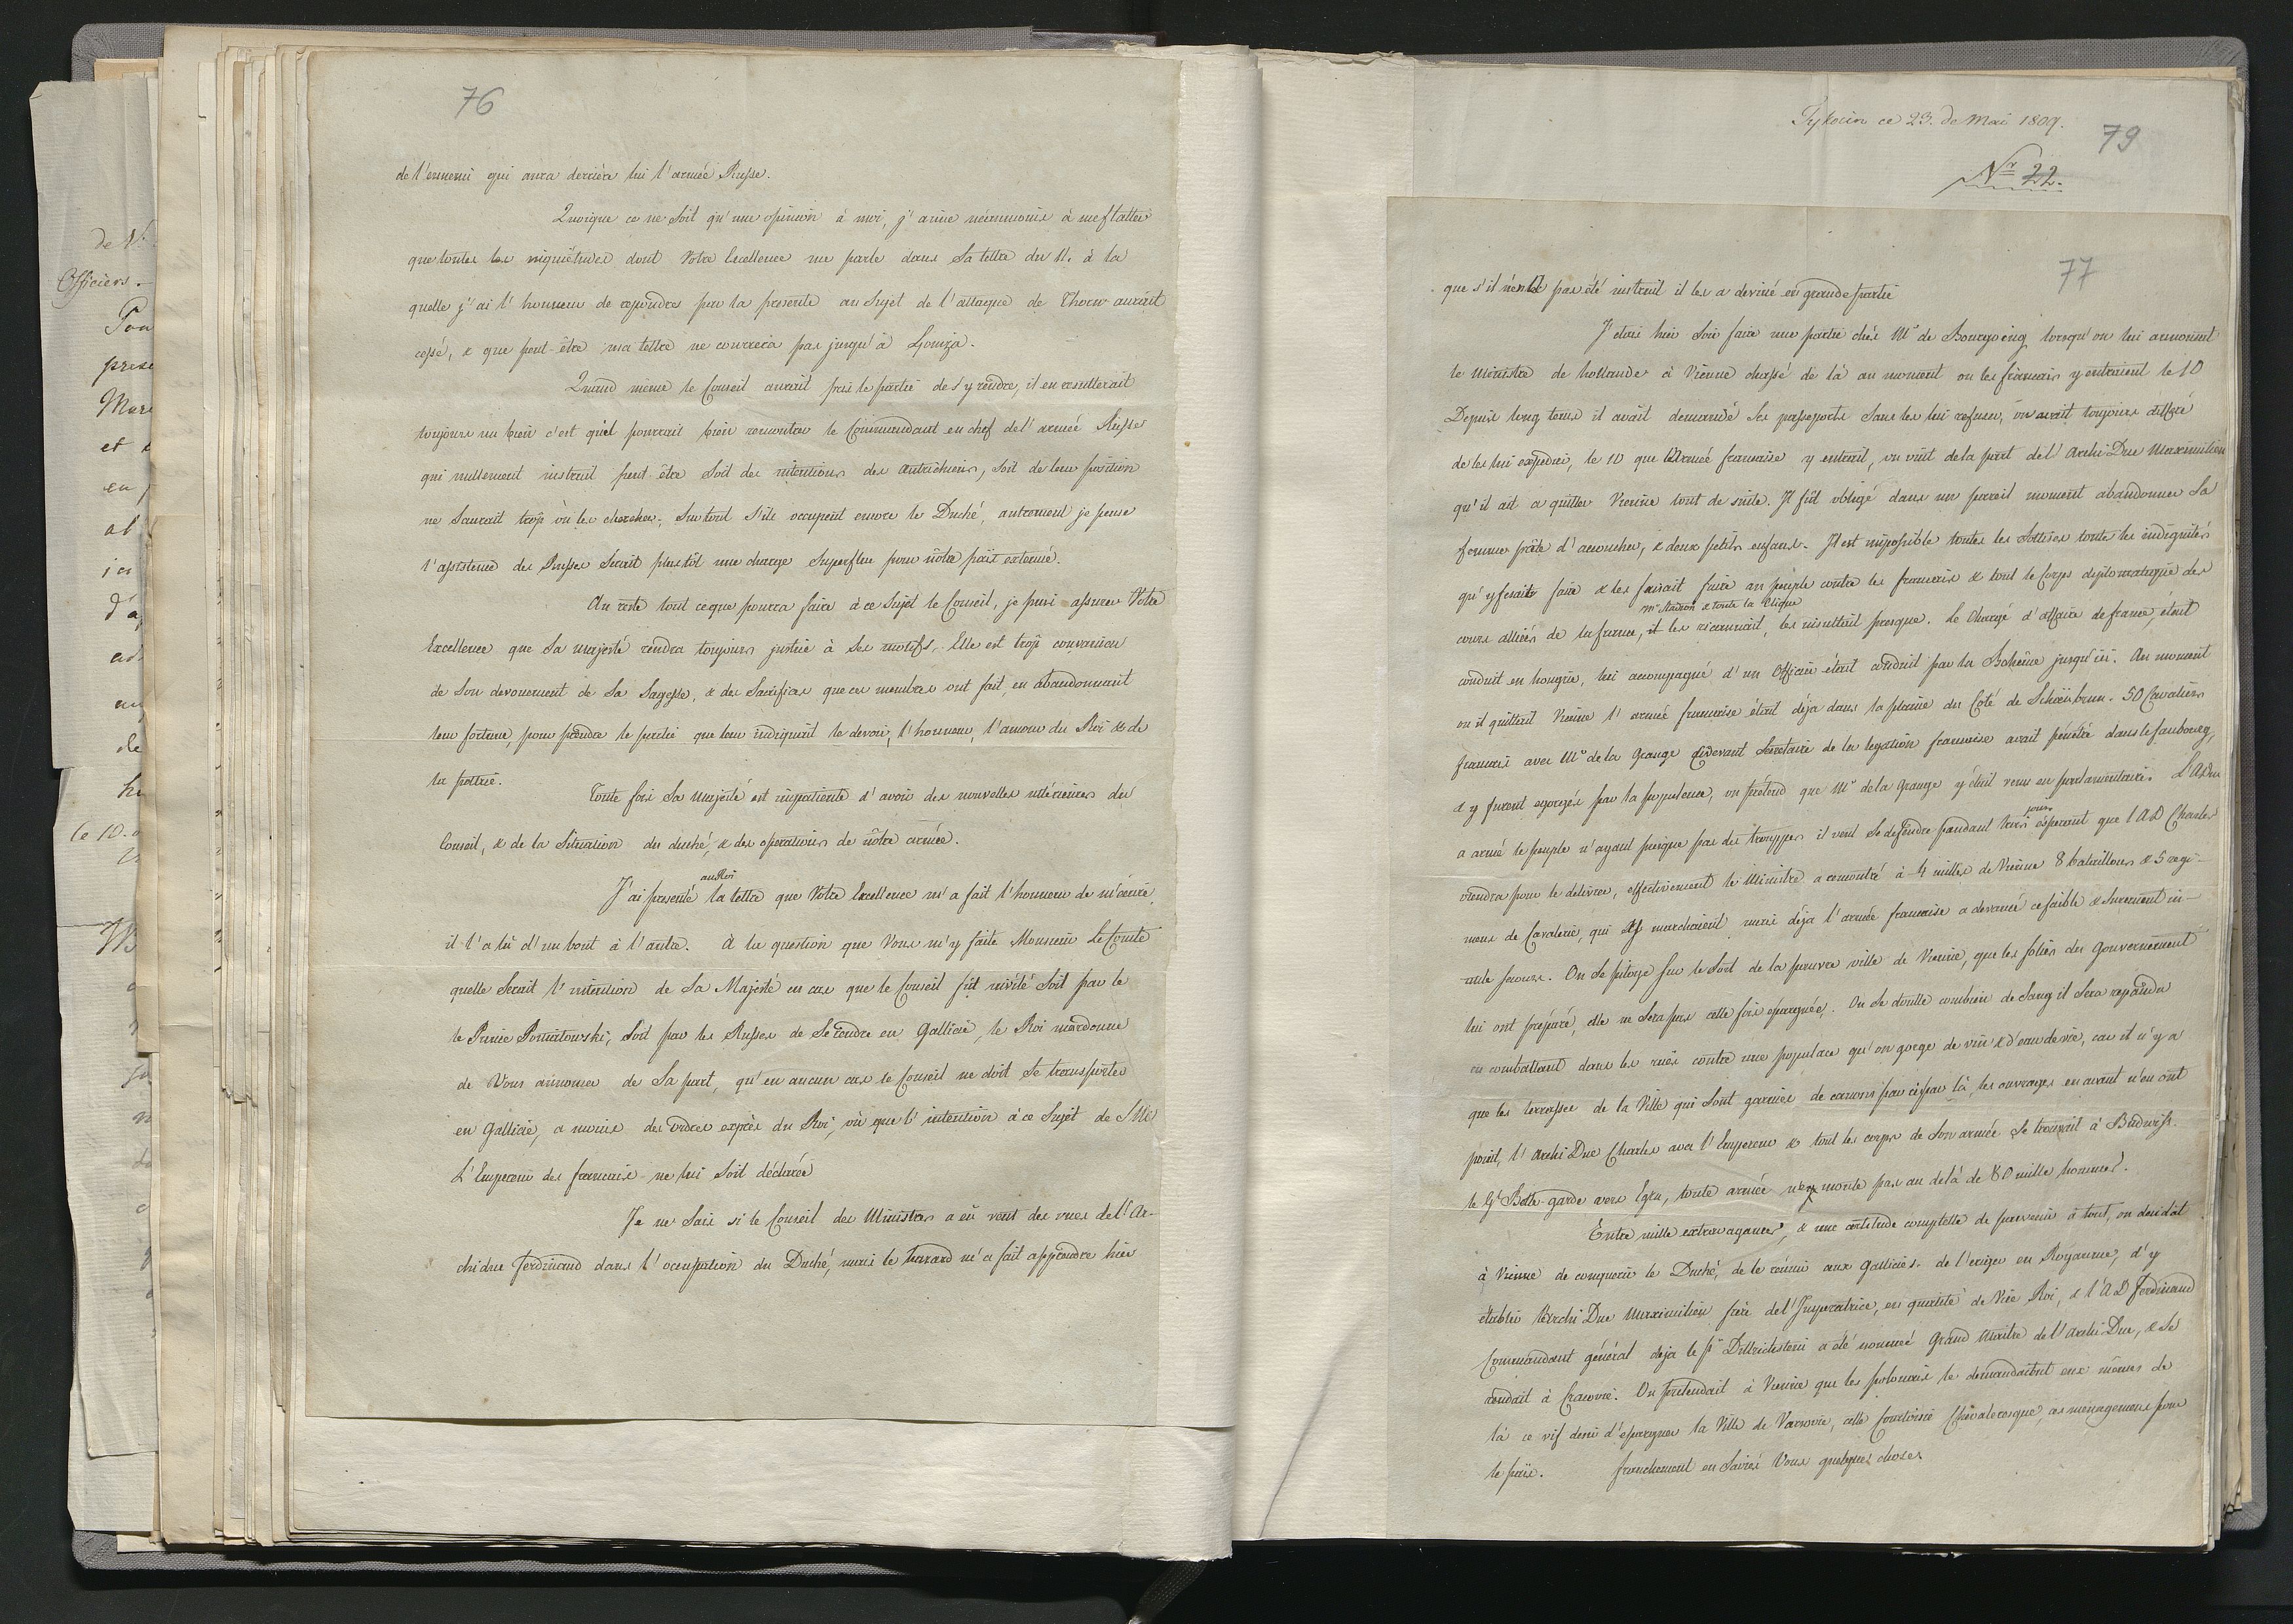 76
de l'ennemi qui aura derrière lui l'armée Russe.
Quoique ce ne soit qu'une opinion à moi, j'aime néanmoins à me flatter
que toutes les inquiétudes dont Votre Excellence me parle dans Sa lettre du 11. à la
quelle j'ai l'honneur de repondre par la presente au Sujet de l'attaque de Thorn aurait
cessé, & que peut-être ma lettre ne courrera pas jusqu'à Lomza.
Quand même le Conseil aurait pris le partie de s'y rendre, il en resulterait
toujours un bien c'est qu'il pourrait bien rencontrer le Commandant en chef de l'armée Russe
qui nullement instruit peut-être Soit des intentions des autrichiens, Soit de leur position
ne Saurait trop où les chercher, Surtout S'ils occupent encore le Duché, autrement je pense
l'assistence des Russes Serait plustôt une charge Superflue pour nôtre païs extenué.
Au reste tout ceque pourra faire à ce Sujet le Conseil, je puis assurer Votre
Excellence que Sa Majesté rendra toujours justice à Ses motifs. Elle est trop convaincu
de Son devouement de Sa Sagesse, & des Sacrifices que ces membres ont fait, en abandonnant
leur fortune, pour prendre le partie que leur indiquait le devoir, l'honneur, l'amour du Roi & de
la patrie.
Toute fois Sa Majesté est impatiente d'avoir des nouvelles ultérieures du
Conseil, & de la Situation du duché, & des operations de nôtre armée.
au Roi
J'ai presenté la lettre que Votre Excellence m'a fait l'honneur de m'écrire,
il l'a lû d'un bout à l'autre. À la question que Vous m'y faite Monsieur Le Comte
quelle Serait l'intention de Sa Majesté en cas que le Conseil fût invité Soit par le
le Prince Poniatowski, Soit par les Russes de Se rendre en Gallicie, le Roi m'ordonne
de Vous annoncer de Sa part, qu'en aucun cas le Conseil ne doit Se transporter
en Gallicie, a moins des ordres exprès du Roi, vû que l'intention à ce Sujet de S M
L'Empereur des français ne lui Soit déclarée
Je ne Sais si le Conseil des Ministres a eû vent des vues de l'Ar-
chiduc Ferdinand dans l'occupation du Duché, mais le hazard m'a fait apprendre hier
Tykocin ce 23. de Mai 1809.
79
Nr 22.
77
que s'il n'en pas été instruit il les a deviné en grande partie
J'étais hier Soir faire une partie chés Mr de Bourgoeing lorsqu'on lui annonçat
le Ministre de hollande à Vienne chassé de là au moment ou les français y entraient le 10
Depuis long tems il avait demandé Ses passeports Sans les lui refuser, on avait toujours differé
de les lui expedier, le 10 que l'Armée française y entrait, on vint de la part de l'Archi Duc Maximilien
qu'il ait a quitter Vienne tout de suite. Il fût obligé dans un pareil moment abandonner Sa
femme prête d'accoucher, & deux petits enfans. Il est impossible toutes les Sottises toutes les indignités
qu'y fesait faire & les faisait faire au peuple contre les francais & tout le Corps diplomatique des
mr Stadion & toute la Clique
cours alliées de la france, les insultait presque. Le Chargé d'affaire de france, était
conduit en hongrie, lui accompagné d'un Officier était conduit par la Bohême jusqu'ici. Au moment
ou il quittait Vienne l'armée française était déja dans la plaine du Coté de Schœnbrun. 50 Cavaliers
francais avec Mr de la Grange cidevant Secretaire de la legation francoise avait pénétré dans le faubourg,
& y furent egorgés par la populace, on prétend que Mr de la Grange y était venu en parlamentaire. L'A Duc
jours
a armé le peuple n'ayant presque pas des trouppes il veut Se defendre pendant trois esperant que l'AD Charles
viendra pour le delivrer, effectivement le Ministre a rencontré à 4 milles de Vienne 8 bataillons & 5 regi-
mens de Cavalerie, qui y marchaient mais déja l'armée francaise a devancé ce faible & Surement in-
utile secours. On Se pitoye Sur le Sort de la pauvre ville de Vienne, que les folies du Gouvernement
lui ont préparé, elle ne Sera pas cette fois épargnée. On Se doutte combien de Sang il Sera repandu
en combattant dans les rues contre une populace qu'on gorge de vin & d'eau de vie, car il n'y a
que les terrasses de la Ville qui Sont garnies de canons par ci par là, les ouvrages en avant n'en ont
point, l'Archi Duc Charles avec l'Empereur & tout les corps de Son armée Se trouvait à Budweis.
le Gl Belle-garde vers Egra, toute armée n'en monte pas au delà de 80 mille hommes.
Entre mille extravagances, & une certitude complette de parvenir à tout, on decidât
à Vienne de conquerir le Duché, de le réunir aux Gallicies. de l'eriger en Royaume, d'y
établir l'Archi Duc Maximilien frère de l'Imperatrice, en qualité de Vice Roi, & l'AD Ferdinand
Commandant général deja le Pr Dittrichstein a été nommé Grand Maitre de l'Archi Duc, & Se
rendait à Cracovie. On pretendait à Vienne que les polonais le demandaient eux mêmes de
là ce vif desir d'épargner la Ville de Varsovie, cette Courtoisie Chevaleresque, ces menagemens pour
le païs. franchement en Saviés Vous quelques choses